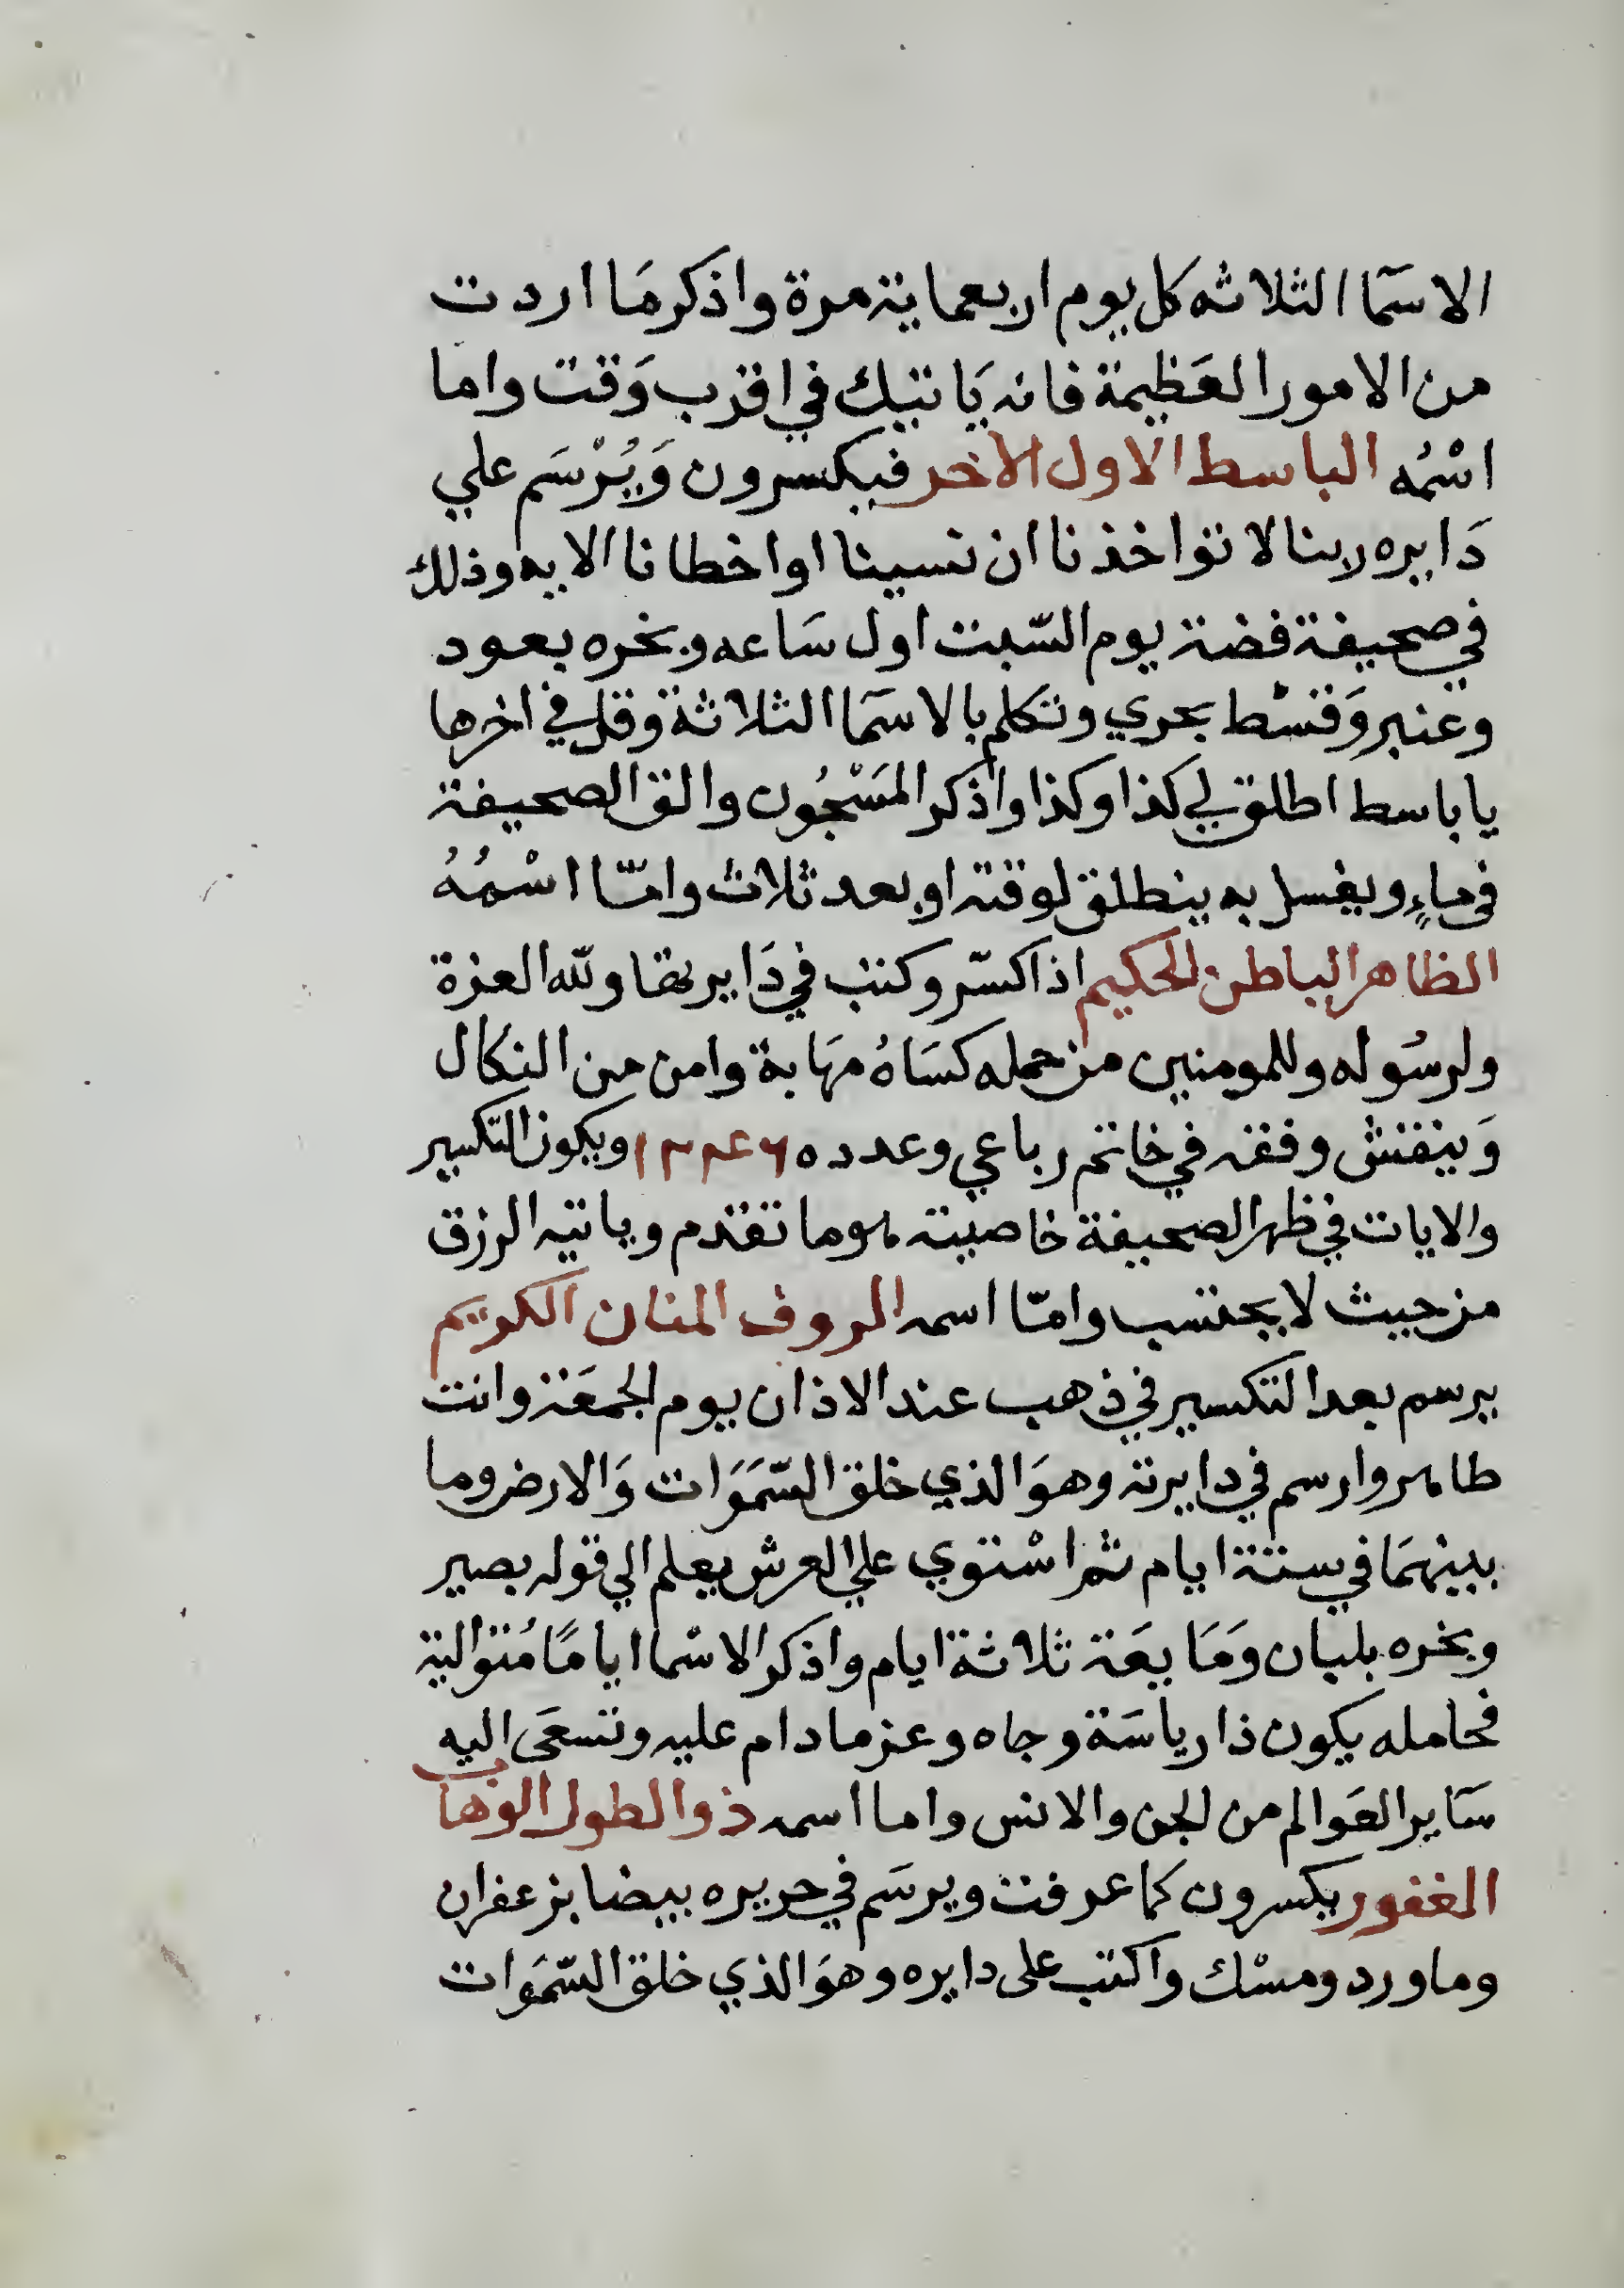 الاسمَآ الثلاثه كل يوم اربعماية مرة واذكر مَا اردت
من الامور العَظيمة فانه يَاتيك في اقرب وَقت واما
اسْمُه الباسط الاول الاخر فيكسرون وَيُرْسَم علي
دَايره ربنا لا تواخذنا ان نسينا او اخطانا الايه وذلك
في صحيفة فضة يوم السّبت اول سَاعه وبخره بعود
وعنبر وَقسْط بحري وتكلم بالاسمَآ الثلاثة وقل في اخرها
يا باسط اطلق لي كذا وكذا واذكر المَسْجُون والق الصحيفة
في ماءٍ ويغسل به ينطلق لوقته او بعد ثلاث وامّا اسْمُهُ
الظاهر الباطن الحكيم اذا كسّر وكتب في دَايرتها ولله العزة
ولرسُوله وللمومنين من حمله كسَاهُ مهَابة وامن من النكال
وَينقش وفقه في خاتم رباعي وعدده ويكون التكسير
والايات في ظهر الصحيفة خاصيته هو ما تقدم وياتيه الرزق
من حيث لا يحتسب وامّا اسمه الروف المنان الكريم
يرسم بعد التكسير في ذهب عند الاذان يوم الجمعَة وانت
طاهر وارسم في دايرته وهوَ الذي خلق السّمَوَات وَالارض وما
بينهمَا في ستة ايام ثم اسْتوي علي العرش يعلم الي قوله بصير
وبخره بلبان وَمَايعَة ثلاثة ايام واذكر الاسْما ايامًا مُتوالية
فحامله يكون ذا رياسَة وجاه وعز ما دام عليه وتسعَى اليه
سَآير العَوالم من الجن والانس واما اسمه ذو الطول الوهاب
الغفور يكسرون كما عرفت ويرسَم في حريره بيضا بزعفران
وماورد ومسْك واكتب على دايره وهوَ الذي خلق السّمَوَات